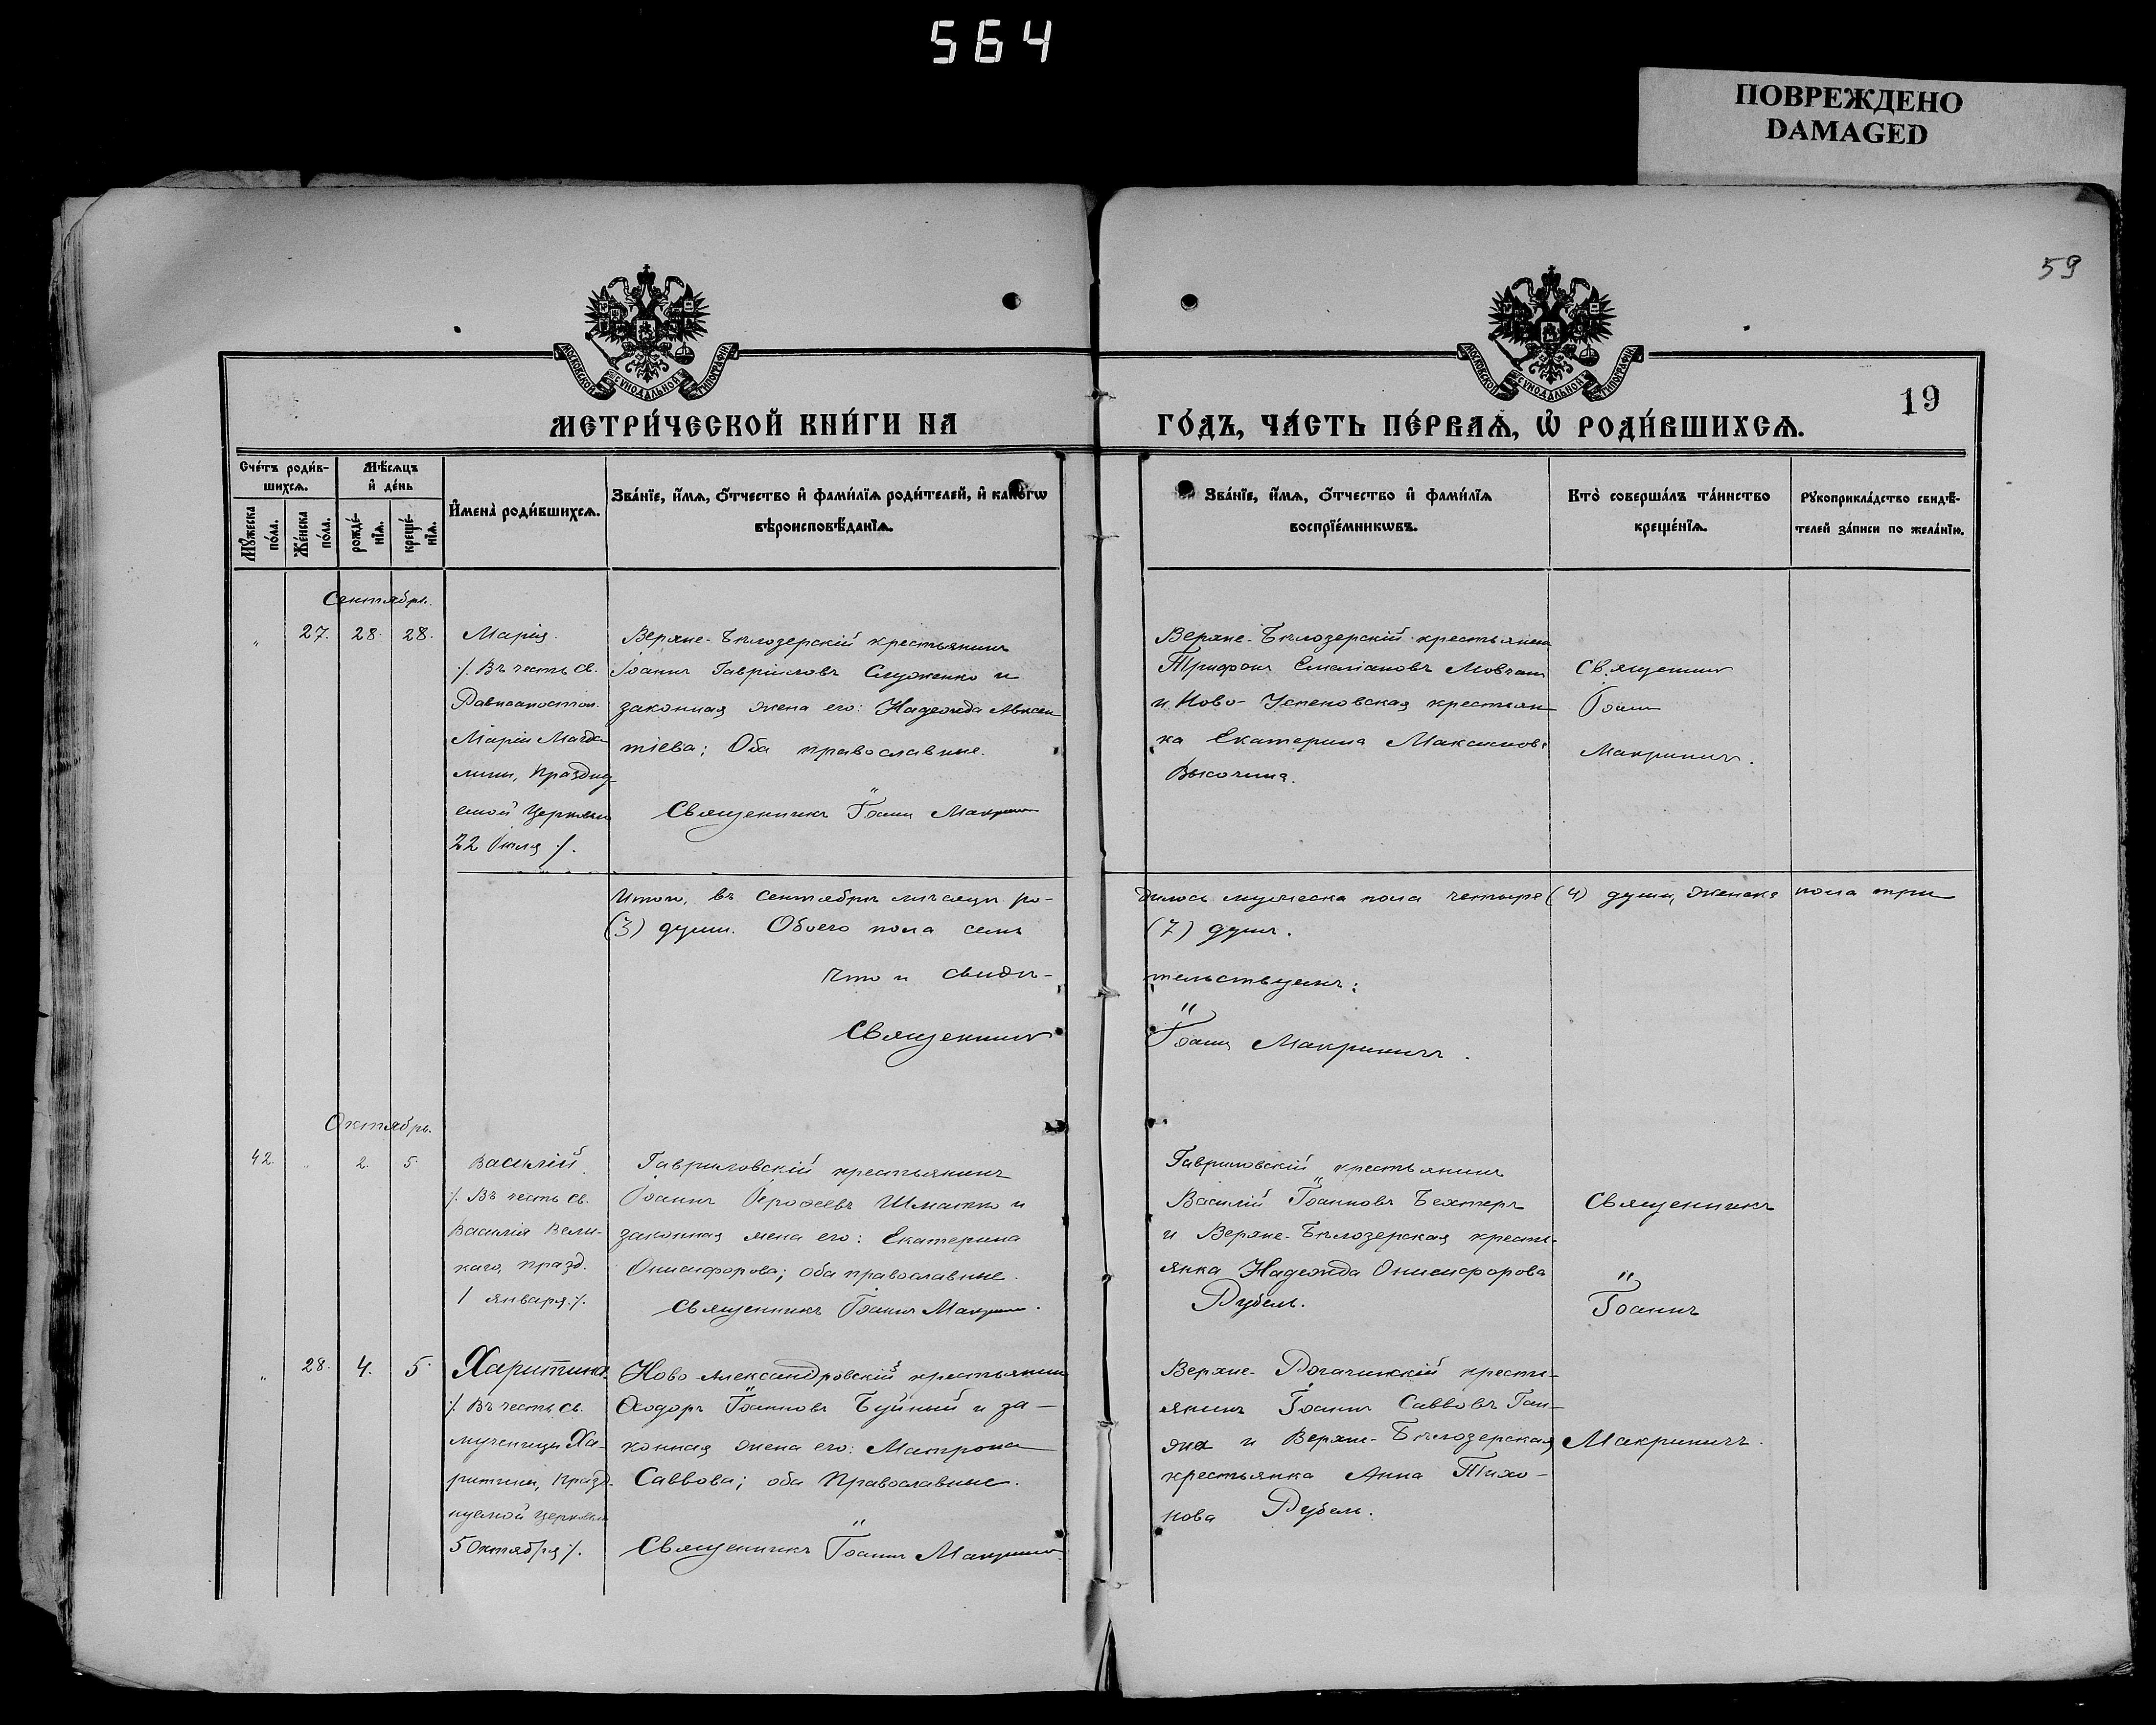 564
ПОВРЕЖДЕНО
DAMAGED
59
МОСКОВСКОЙ СѴНОДАЛЬНОЙ ТИПОГРАФІИ
МОСКОВСКОЙ СѴНОДАЛЬНОЙ ТИПОГРАФІИ
19
МЕТРИ́ЧЕСКОЙ КНИ́ГИ НА
ГО́ДЪ, ЧА́СТЬ ПЕ́РВАѦ, Ѡ РОДИ́ВШИХСѦ.
Сче́тъ роди́в-
шихсѧ.
Мѣ́сѧцъ
и де́нь
Мꙋ́жеска
по́ла.
Же́нска
по́ла.
рожде́-
нїѧ.
креще́-
нїѧ.
Имена̀ роди́вшихсѧ.
Зва́нїе, и́мѧ, ѻ́тчество и фами́лїѧ роди́телей, и како́гѡ
вѣроисповѣ́данїѧ.
Зва́нїе, и́мѧ, ѻ́тчество и фами́лїѧ
воспрїе́мникѡвъ.
Кто̀ соверша́лъ та́инство
креще́нїѧ.
Рꙋкоприкла́дство свидѣ́-
телей за́писи по жела́нїю.
Сентябрь.
" 27. 28. 28.
Марія.
/. Въ честь св.
Равноапостол.
Маріи Магда-
лины, празднуемой церковью
22 Іюля ./.
Верхне-Бѣлозерскій крестьянинъ
Іоаннъ Гавріиловъ и
законная жена его: Надежда Авксен-
тіева; Оба православные.
Священникъ Іоаннъ Макриничъ
Верхне-Бѣлозерскій крестьянинъ
Трифонъ Емеліановъ Мовчанъ
и Ново-Успеновская крестьян-
ка Екатерина Максимова
Высочина.
Священникъ
Іоаннъ
Макриничъ.
Итого, въ сентябрѣ мѣсяцѣ ро-
дилось мужеска пола четыре (4) души, женска пола три
(3) души. Обоего пола семь
(7) душъ.
Что и свидѣ-
тельствуемъ:
Священникъ
Іоаннъ Макриничъ.
Октябрь.
42. " 2. 5.
Василій
/. Въ честь св.
Василія Вели-
каго, празд.
1 января ./.
Гавриловскій крестьянинъ
Іоаннъ Іероѳеевъ Шматко и
законная жена его: Екатерина
Онисифорова; оба православные.
Священникъ Іоаннъ Макриничъ.
Гавриловскій крестьянинъ
Василій Іоанновъ Бехтеръ
и Верхне-Бѣлозерская кресть-
янка Надежда Онисифорова
Рубель.
Священникъ
Іоаннъ
" 28. 4. 5.
Харитина
/. Въ честь св.
мученицы Ха-
ритины, празд-
нуемой церковью
5 Октября ./.
Ново-Александровскій крестьянинъ
Ѳеодоръ Іоанновъ Буйный и за-
конная жена его: Матрона
Саввова; оба Православные.
Священникъ Іоаннъ Макриничъ
Верхне-Рогачикскій кресть-
янинъ Іоаннъ Саввовъ Ган-
жа и Верхне-Бѣлозерская
крестьянка Анна Тихо-
нова Рубель.
Макриничъ.